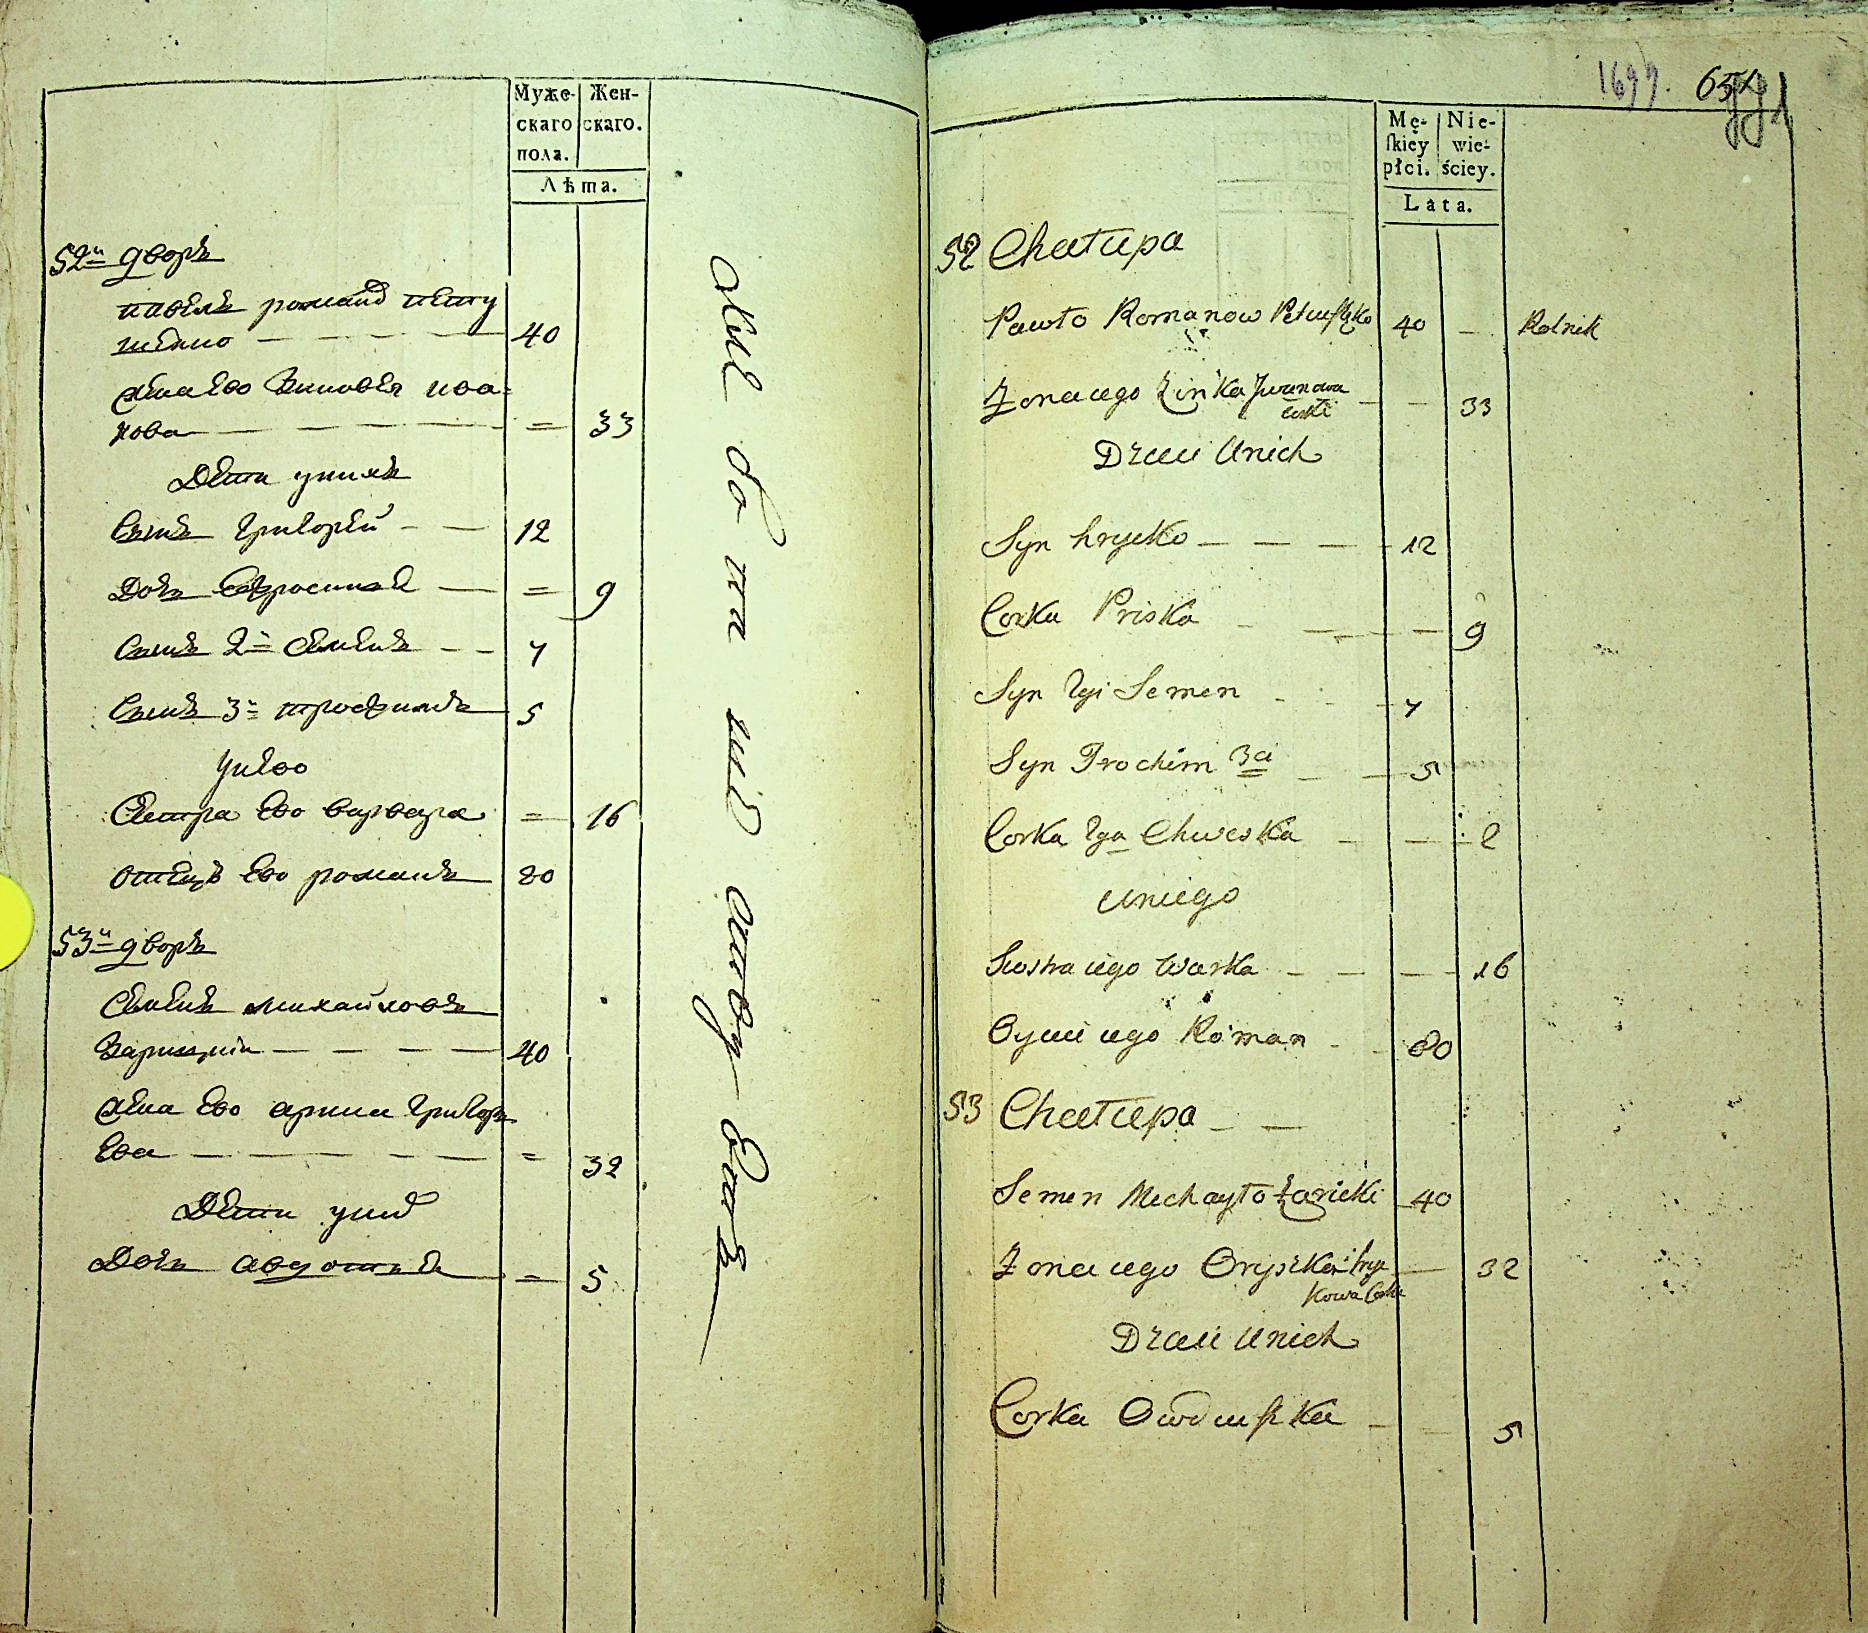 Муже-
скаго
пола.
Жен-
скаго.
Лѣта.
52й дворъ
павелъ романо̑ пету
шенко — — — — 40
жена ево Зиновея ива=
нова — — — — = 33
Дети унихъ
Сынъ Григорей — — 12
Дочь Ефросинея — = 9
Сынъ 2й Семенъ — — 7
Сынъ 3й трофимъ — 5
унево
Сестра ево варвара = 16
отецъ ево романъ 80
53й дворъ
Семенъ михайловъ
Зарицкии — — — — 40
жена ево арина Григорь
ева — — — — — = 32
Дети унихъ
Дочь авдотья = 5
1699. 651
991
Mę-
ſkiey
płci.
Nie-
wie-
ściey.
Lata.
52 Chałupa
Pawło Romanow Petuſzko 40 — Rolnik
Zona iego Zinka Jwanowa — — 33
corka
Dzieci Unich
Syn hryćko — — — 12
Corka Priska — — — 9
Syn 2gi Semen - - - 7
Syn Trochim 3ci — — 5
Corka 2ga Chweska — — 2
Uniego
Siostra iego Warka — — — 16
Oyciec iego Roman - - 80
53 Chałupa — —
Semen Mechayło Zaricki 40
Zona iego Oryszka hry — 32
kowa Corka
Dzieci Unich
Corka Owduſzka — — 5